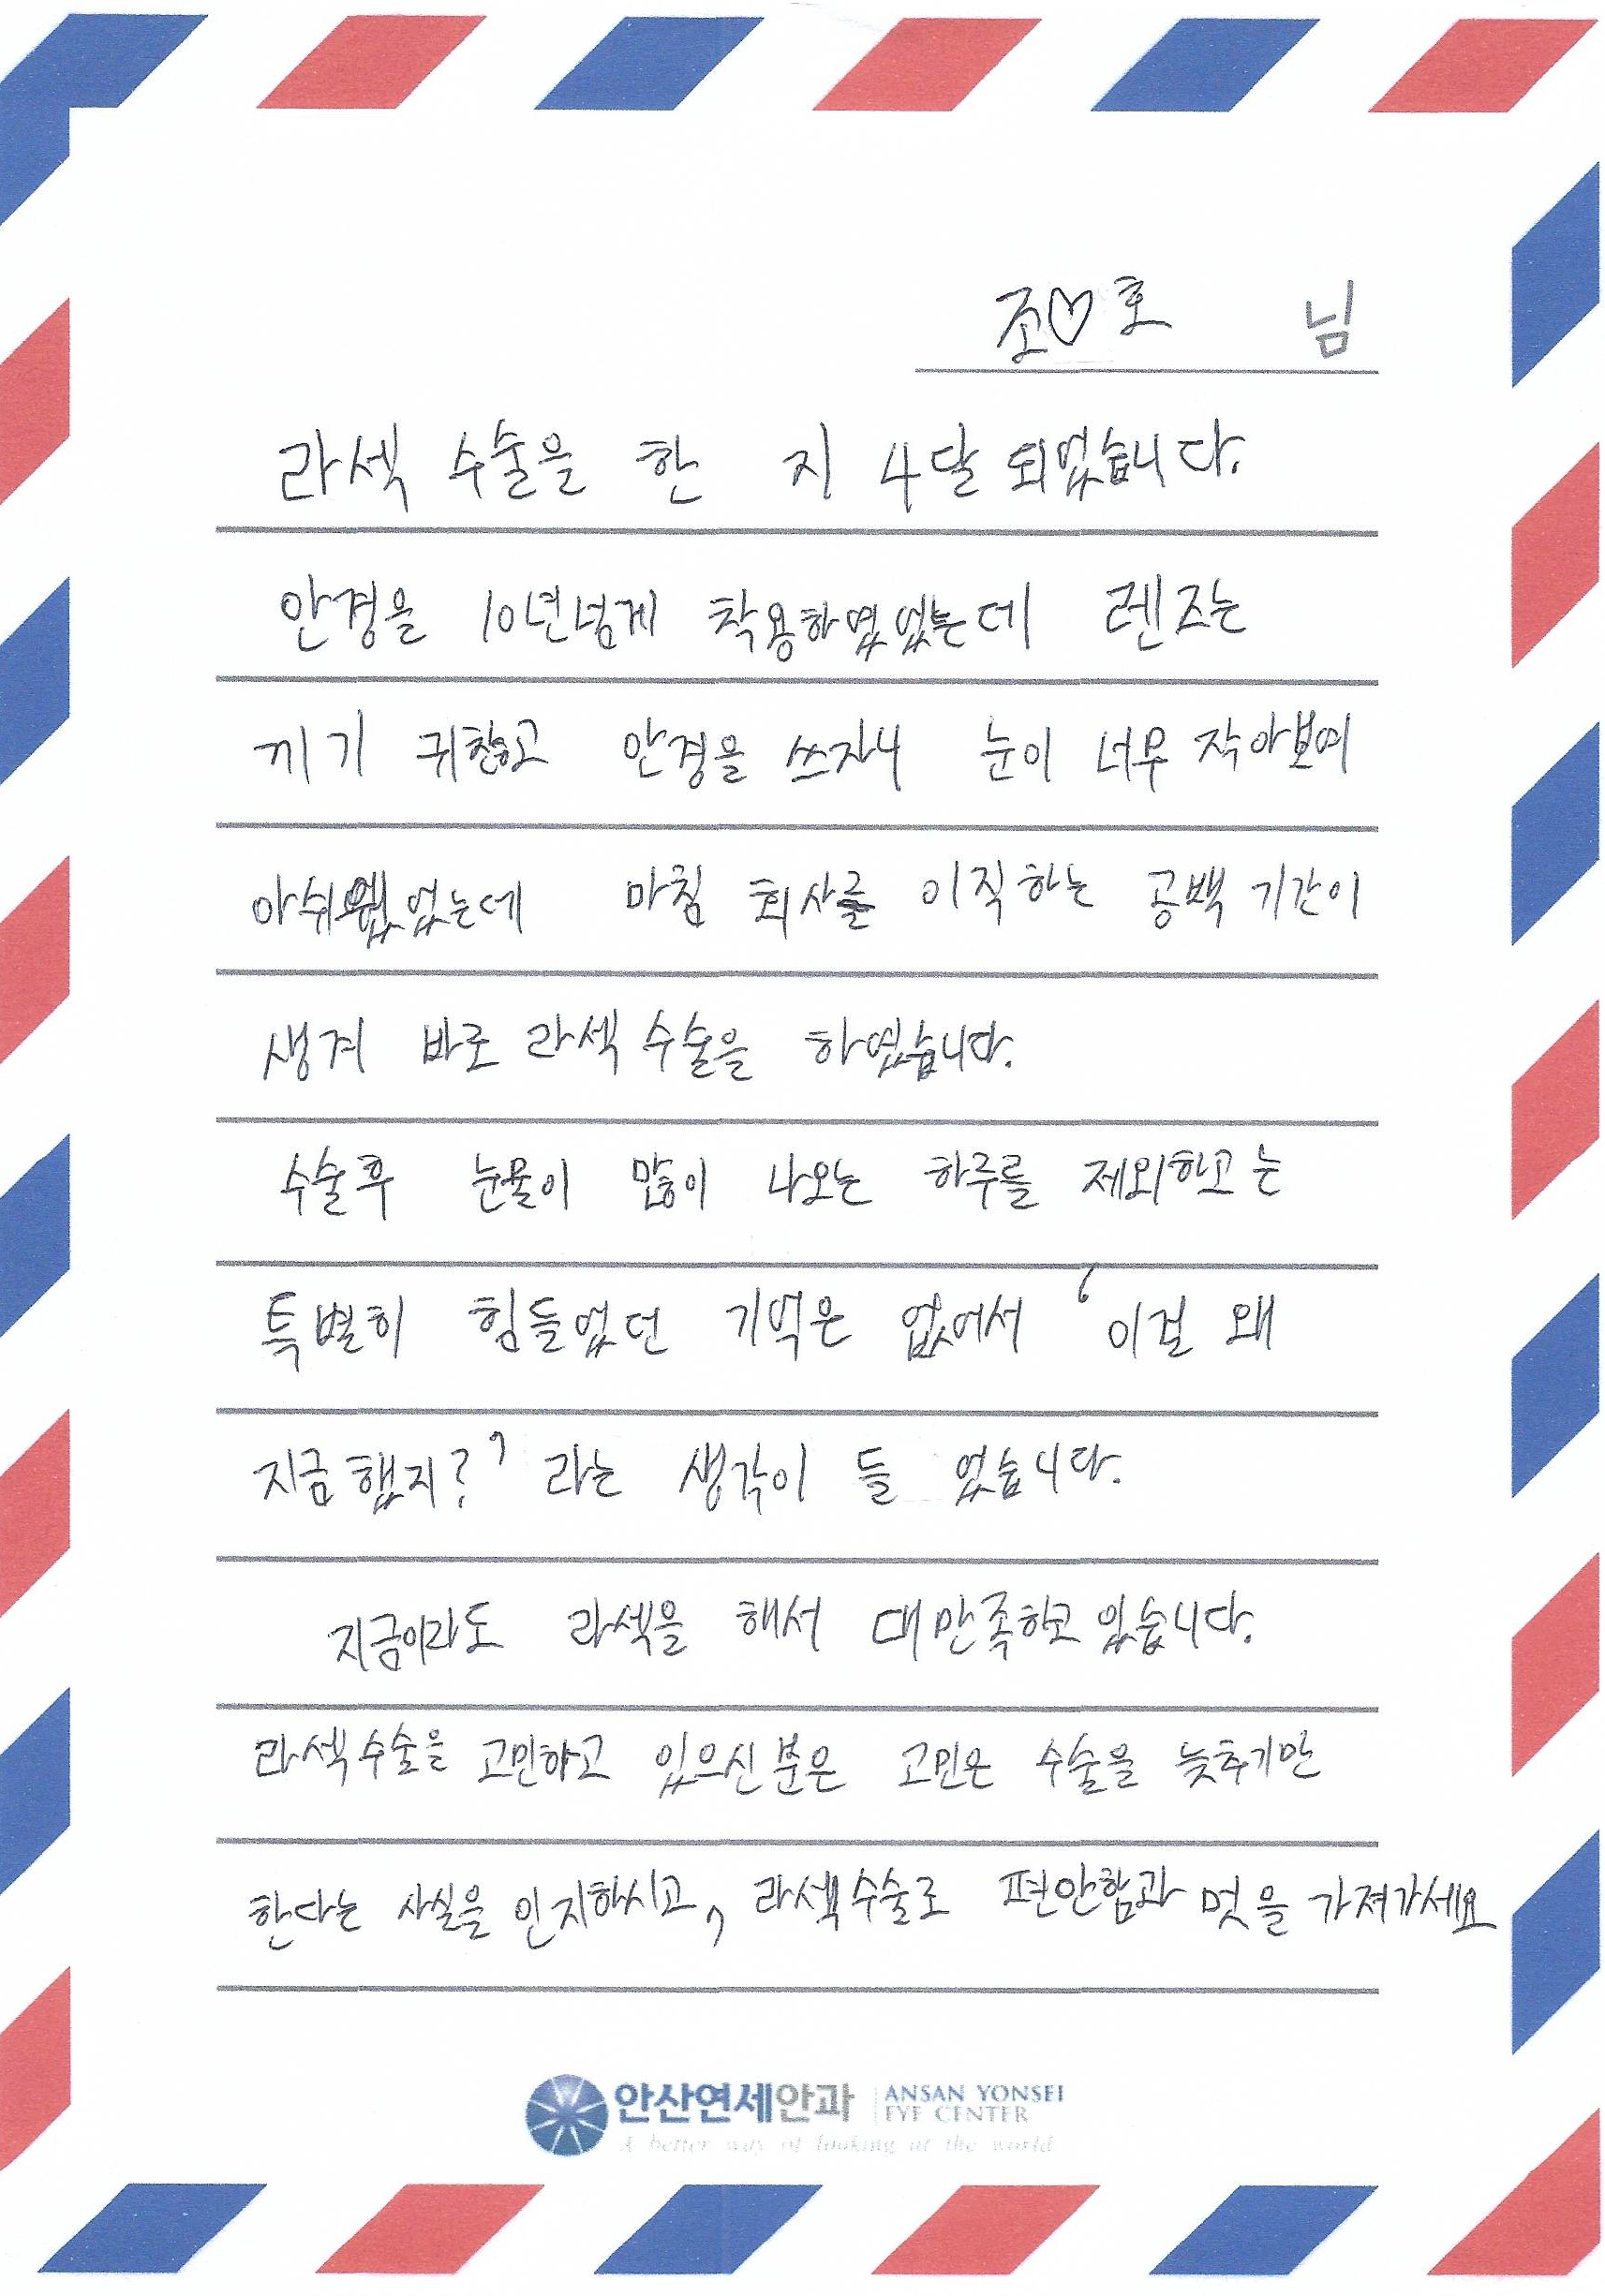 조♡호 님
라섹 수술을 한 지 4달 되었습니다.
안경을 10년넘게 착용하였었는데 렌즈는
끼기 귀찮고 안경을 쓰자니 눈이 너무 작아보여
아쉬웠었는데 마침 회사를 이직하는 공백 기간이
생겨 바로 라섹 수술을 하였습니다.
수술후 눈물이 많이 나오는 하루를 제외하고는
특별히 힘들었던 기억은 없어서 '이걸 왜
지금했지?' 라는 생각이 들 었습니다.
지금이라도 라섹을 해서 대만족하고 있습니다.
라섹수술을 고민하고 있으신분은 고민은 수술을 늦추기만
한다는 사실을 인지하시고, 라섹수술로 편안함과 멋을 가져가세요
안산연세안과 ANSAN YONSEI
EYE CENTER
A better way of looking at the world